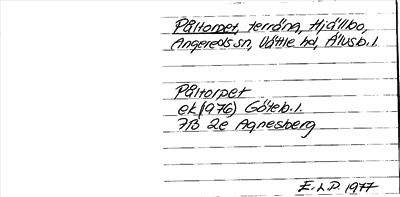 Påltorpet, terräng, Hjällbo,
Angereds sn, Vättle hd, Älvsb. l.
Påltorpet
ek (976) Göteb. l.
7B 2e Agnesberg
E. L. P. 1977